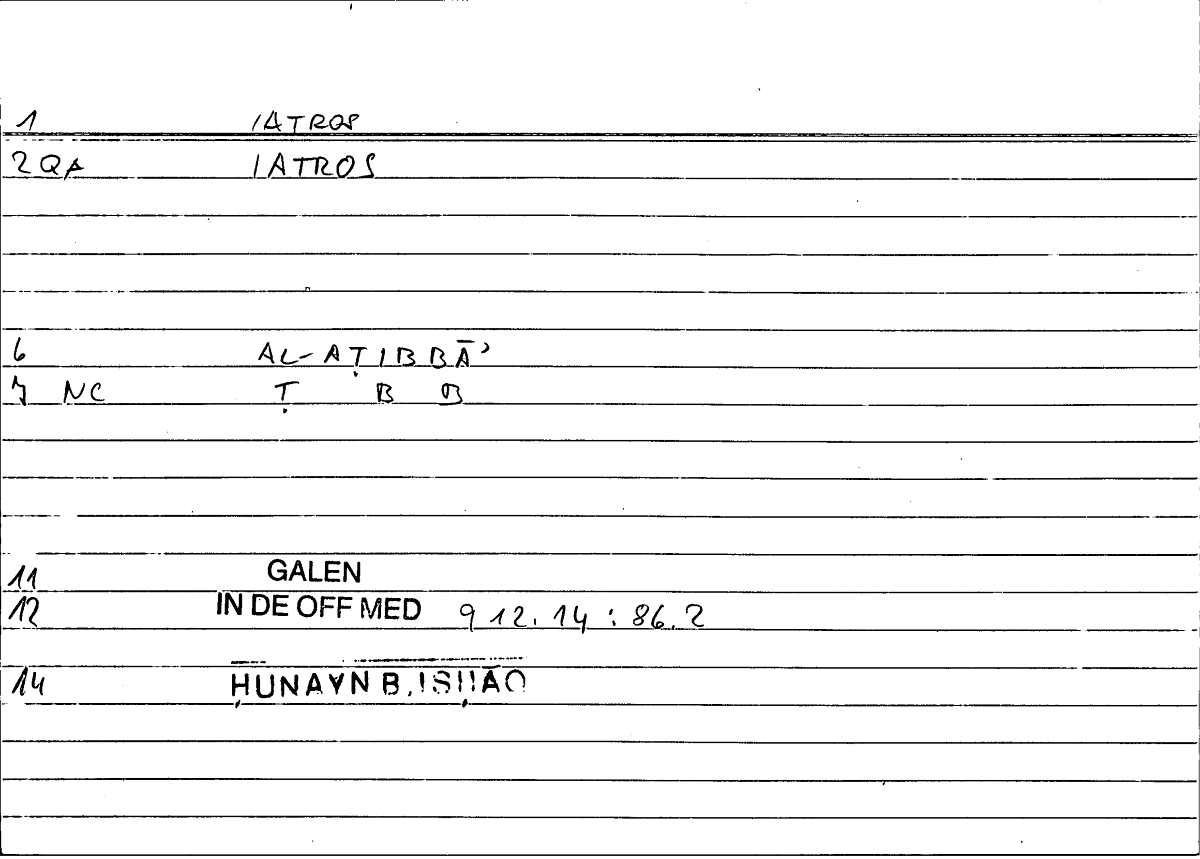 1 IATROS
2 QA IATROS
6 AL-AṬIBBĀʾ
7 NC Ṭ B B
11 GALEN
12 IN DE OFF MED 9 12.14 : 86.2
14 ḤUNAYN B. ISḤĀQ